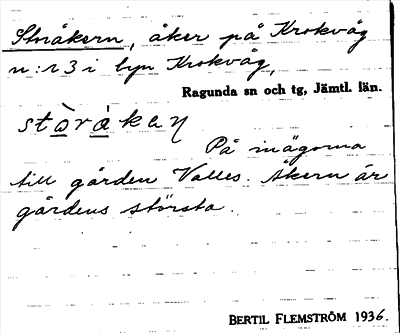 Storåkern, åker på Krokvåg
n:r 3 i byn Krokvåg,
Ragunda sn och tg, Jämtl. län.
stòràkaɳ
På inägorna
till gården Valles. Åkern är
gårdens största.
BERTIL FLEMSTRÖM 1936.